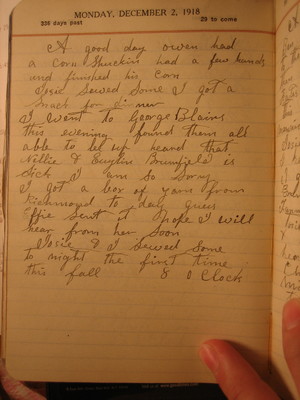 MONDAY, DECEMBER 2, 1918
336 days past 29 to come
A good day owen had
a Corn Shuckin had a few hands
and finished his Corn
Josie Sewed Some I got a
Snack for dinner
I went to George Blains
this evening found them all
able to set up heard that
Nellie & Eugene Brumfield is
Sick I am so Sorry
I got a box of yarn from
Richmond to day guess
Effie Sent it hope I will
hear from her Soon
Josie & I Sewed Some
to night the first time
this fall 8 O Clock